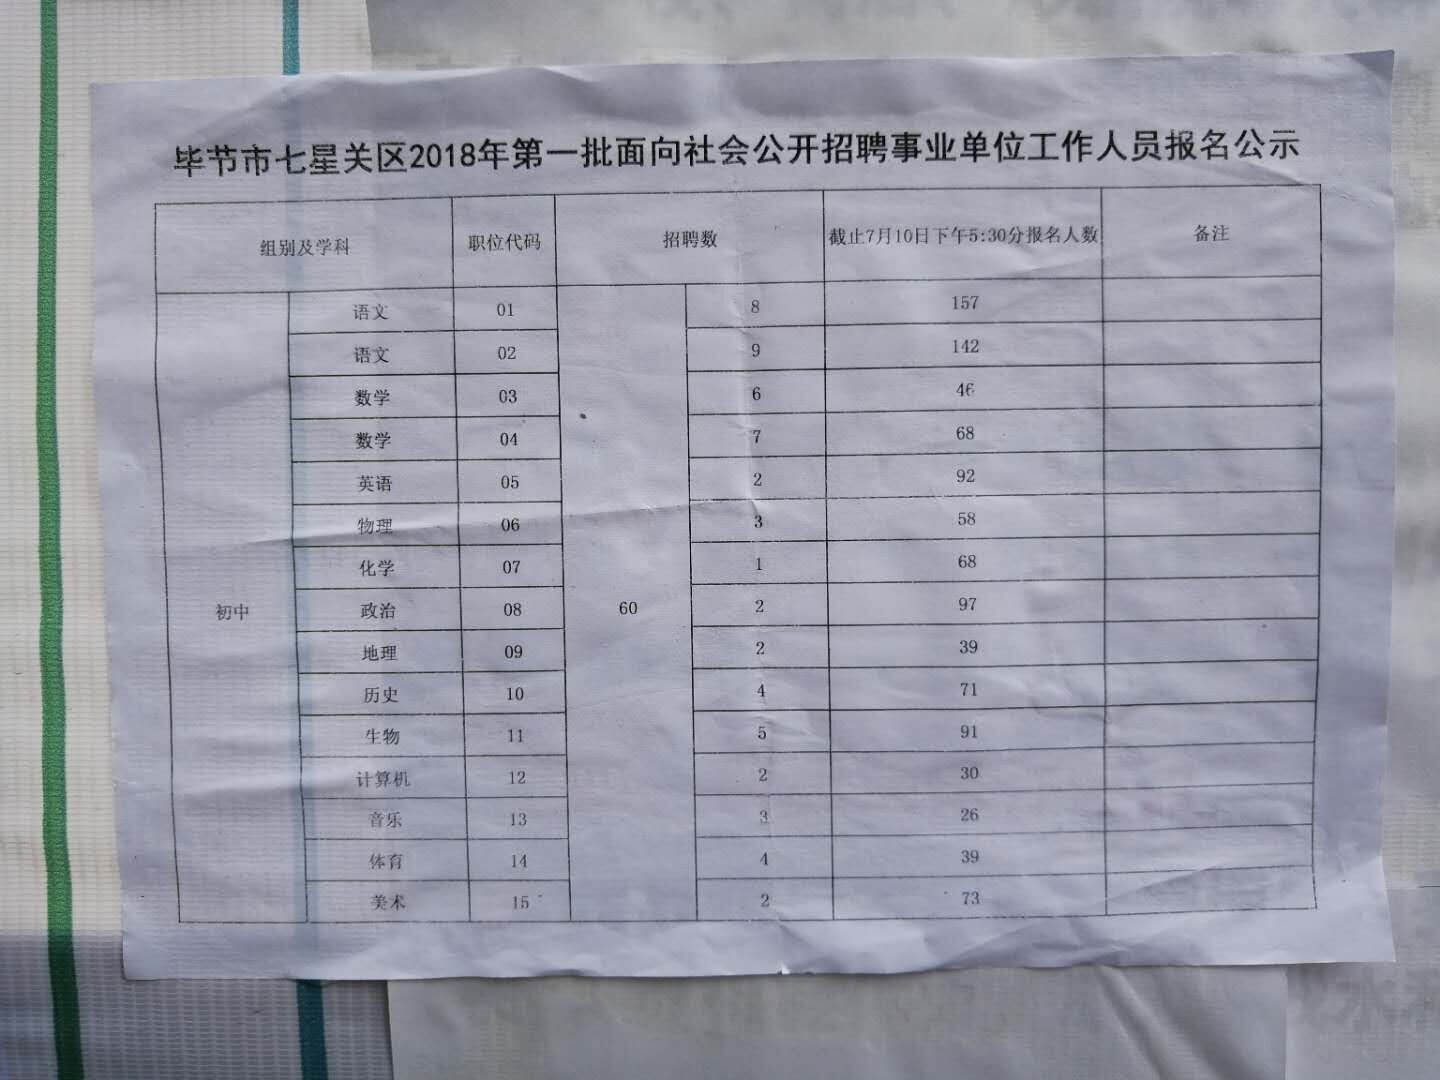 毕节市七星关区2018年第一批面向社会公开招聘事业单位工作人员报名公示
组别及学科 职位代码 招聘数 截止7月10日下午5:30分报名人数 备注
初中 60
语文 01 8 157
语文 02 9 142
数学 03 6 46
数学 04 7 68
英语 05 2 92
物理 06 3 58
化学 07 1 68
政治 08 2 97
地理 09 2 39
历史 10 4 71
生物 11 5 91
计算机 12 2 30
音乐 13 3 26
体育 14 4 39
美术 15 2 73